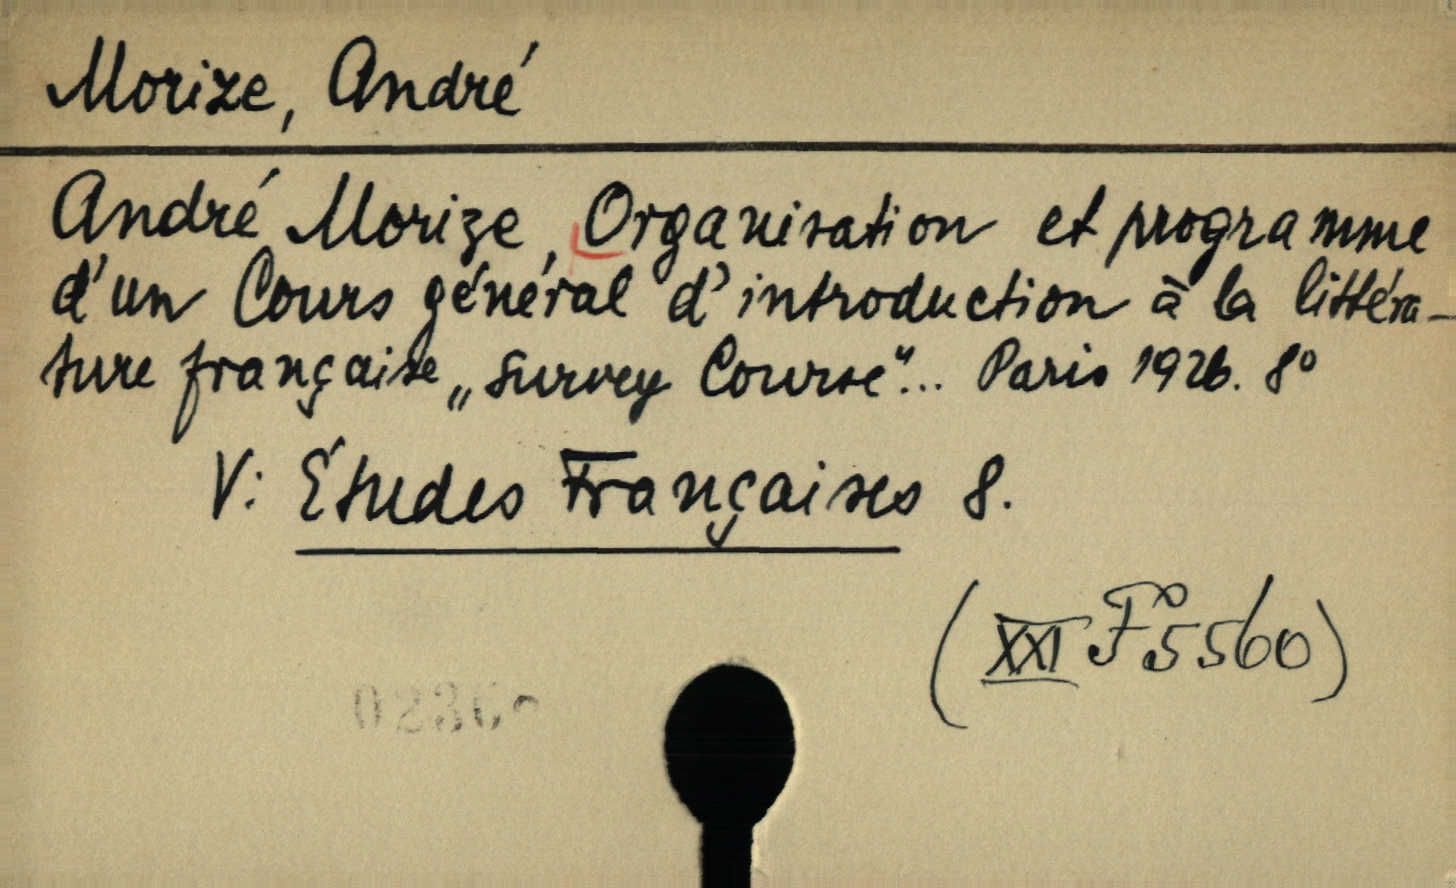 Morize, André
André Morize, Organisation et programme
d'un Cours général d'introduction à la littéra-
ture française „Survey Course“... Paris 1926. 8°
V: Études Françaises 8.
(XXI F 5560)